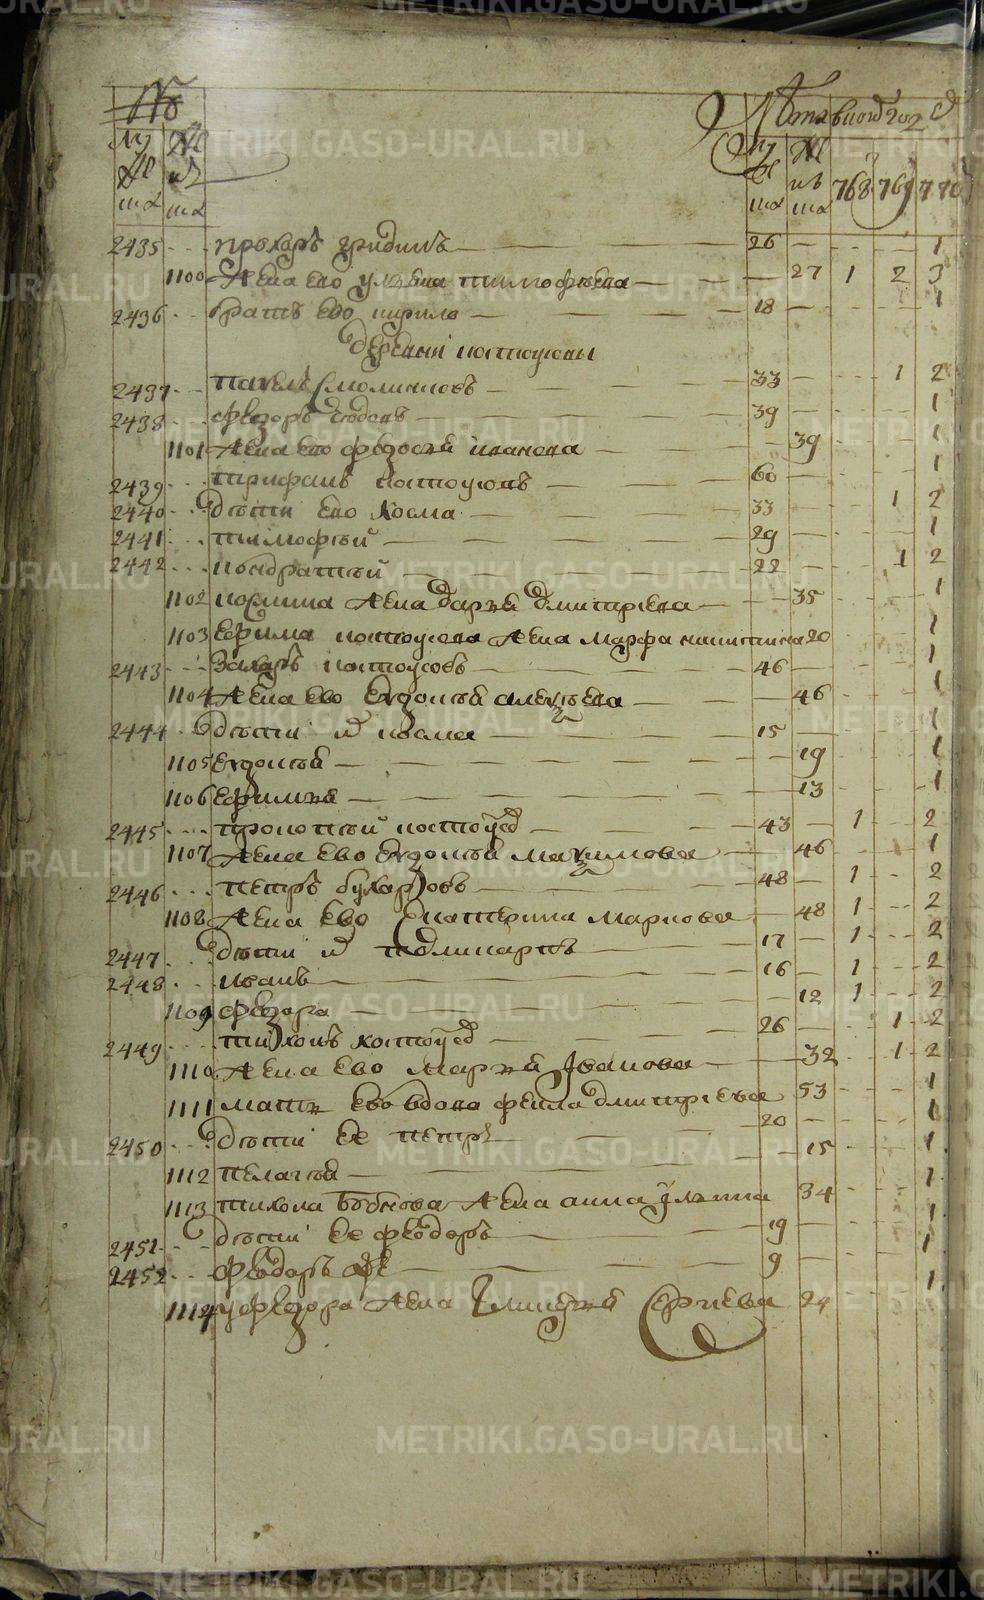 № Лета в кои год
му же му же 768 769 770
ска ска ска ска
2435 прохоръ гридинъ 26 1
1100 жена ево ульяна тимофеева 27 1 2 3
2436 братъ ево кирило 18 1
деревни костоусовы
2437 павелъ смолниковъ 33 1 2
2438 федоръ 39 1
1101 жена ево федосья иванова 39 1
2439 трифанъ костоусовъ 60 1
2440 дети ево козма 33 1 2
2441 тимофей 29 1
2442 кондратей 22 1 2
1102 козмина жена дарья дмитриева 35 1
1103 ефима костоусова жена марфа никитина 20 1
2443 захаръ костоусовъ 46 1
1104 жена ево евдокия алексеева 46 1
2444 дети их козма 15 1
1105 евдокия 19 1
1106 ефимья 13 1
2445 прокопей костоусов 43 1 2
1107 жена ево евдокия максимова 46 1
2446 петръ бухаровъ 48 1 2
1108 жена ево екатерина маркова 48 1 2
2447 дети их поликарпъ 17 1 2
2448 иванъ 16 1 2
1109 федора 12 1 2
2449 тихонъ костоусов 26 1 2
1110 жена ево марья иванова 32 1 2
1111 мать ево вдова фекла дмитриева 53 1
2450 дети ее петръ 20 1
1112 пелагея 15 1
1113 жена анна ульянина 34 1
2451 дети ее федоръ 19 1
2452 федоръ же 9 1
1114 у федора жена сергиева 24 1
METRIKI.GASO-URAL.RU